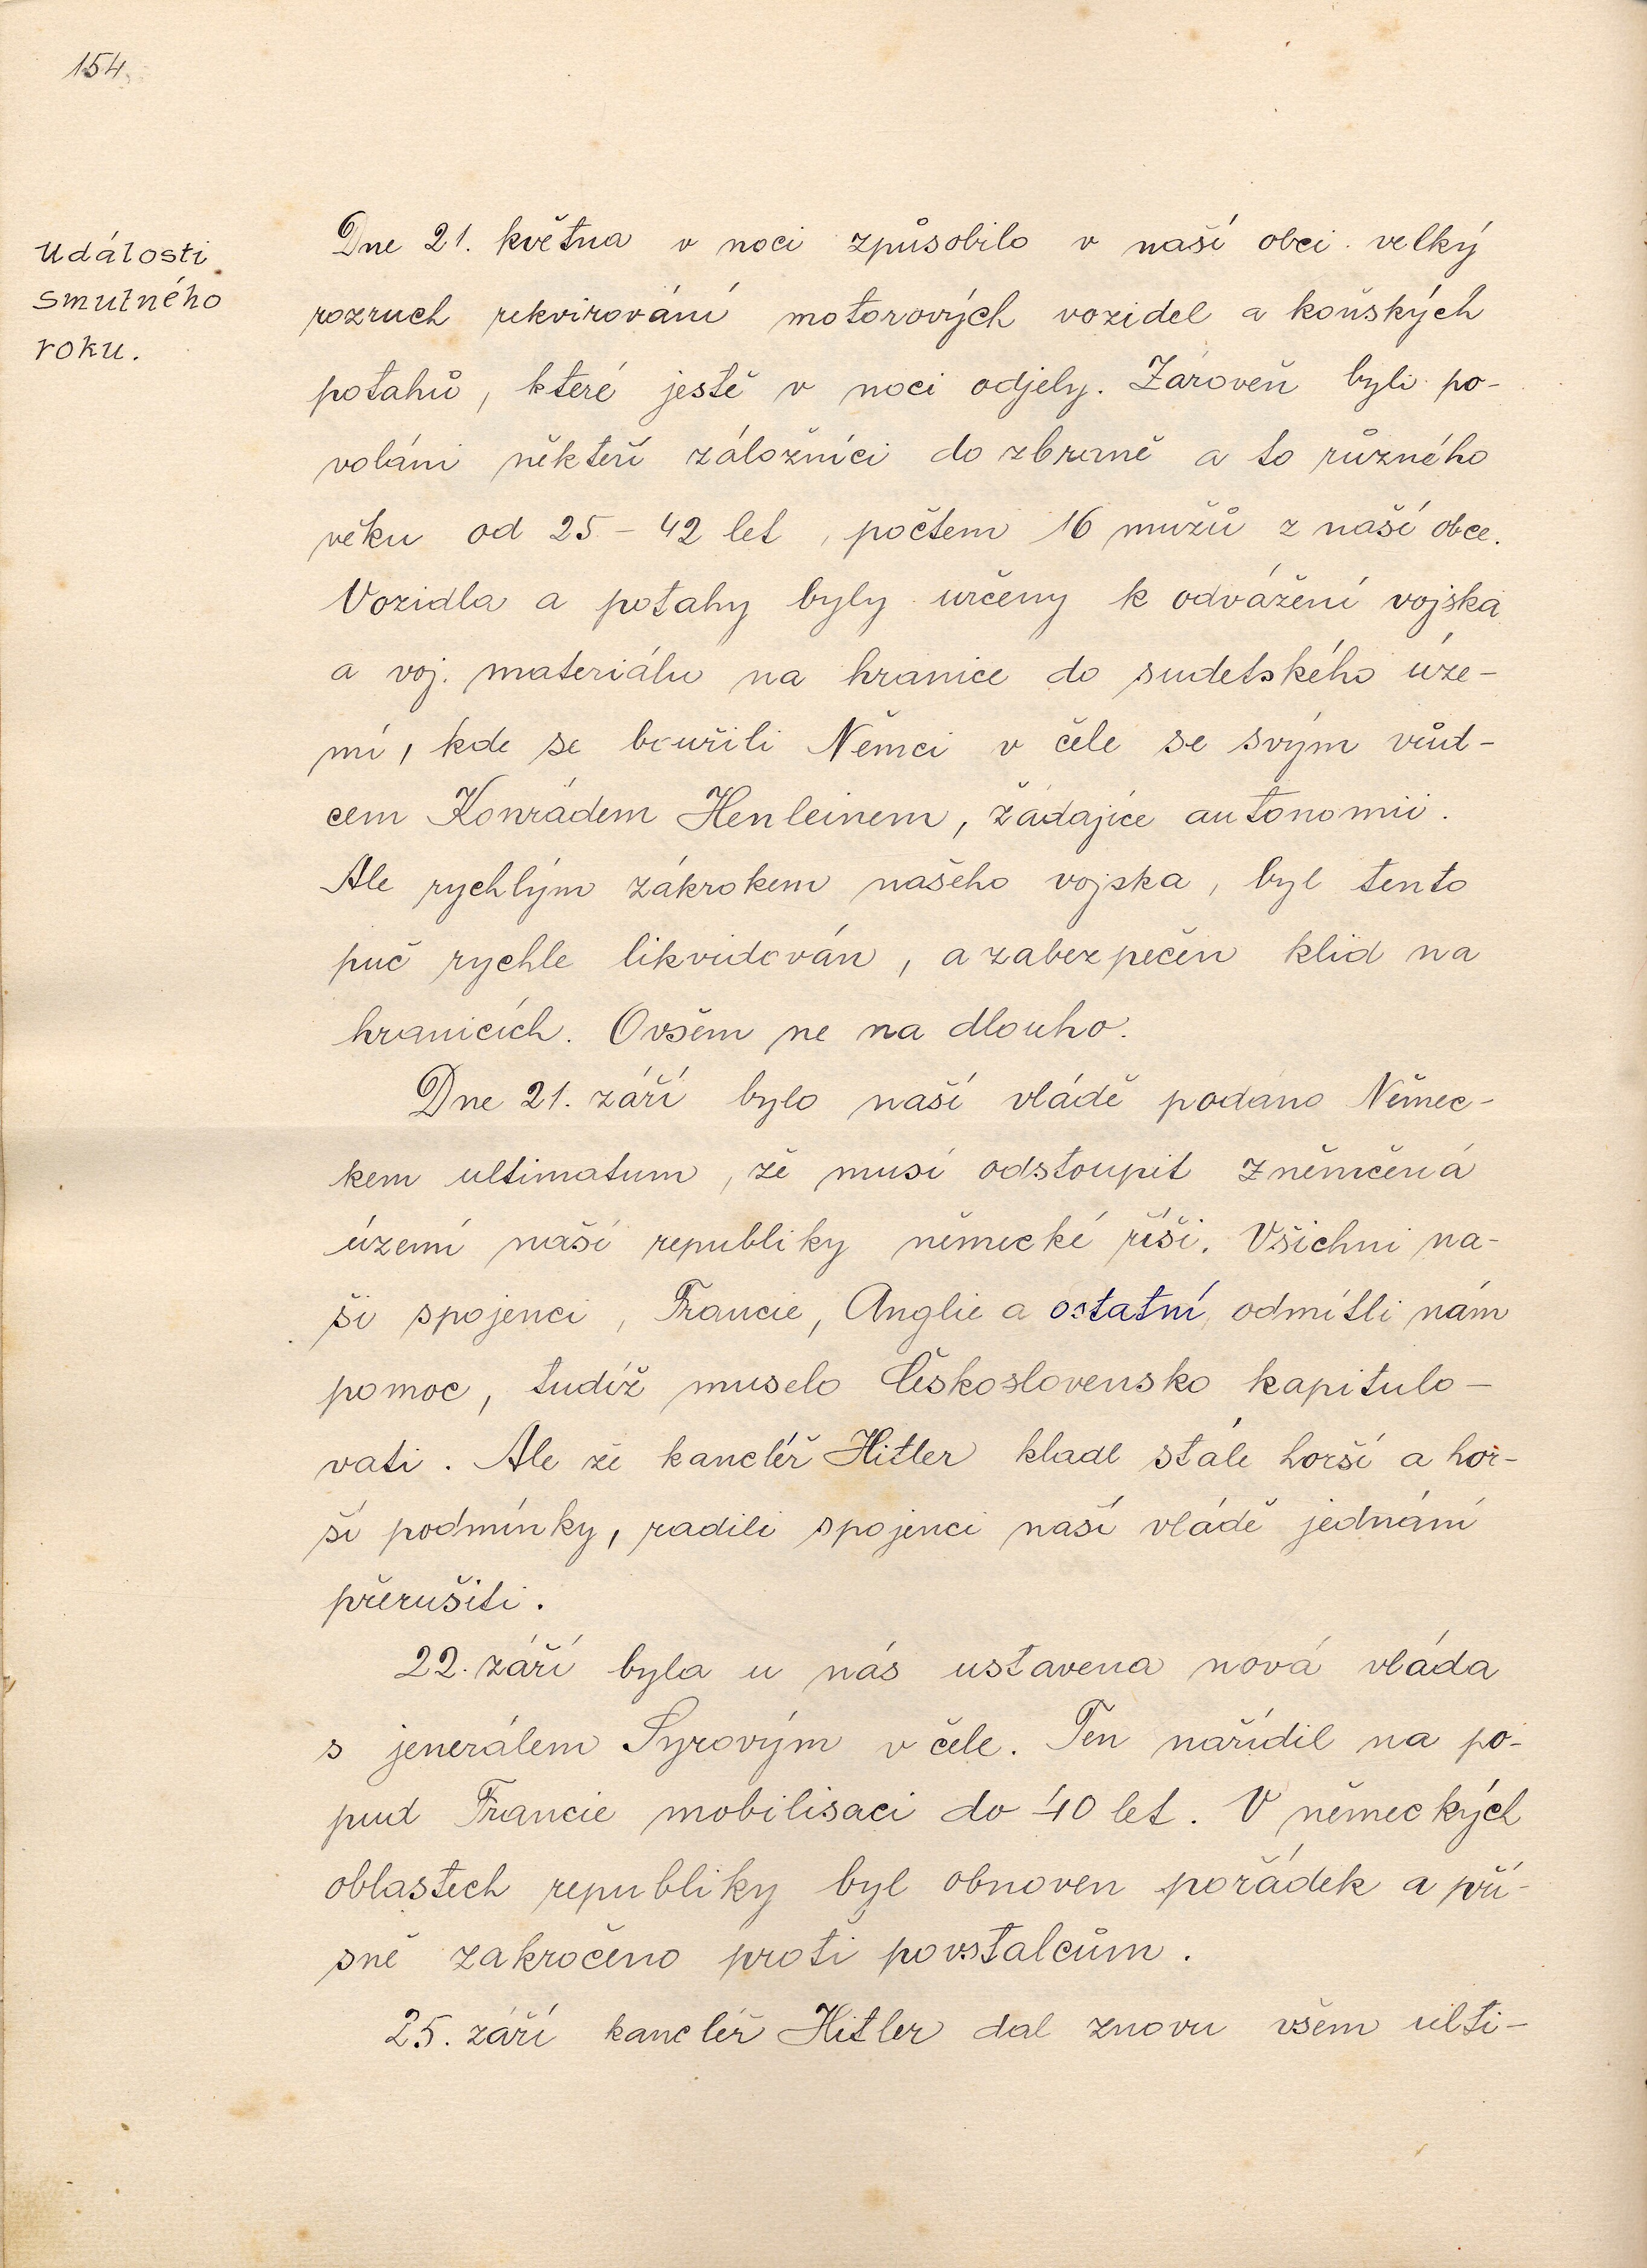 154.
Události
smutného
roku.
Dne 21. května v noci způsobilo v naší obci velký
rozruch rekvirování motorových vozidel a koňských
potahů, které jestě v noci odjely. Zároveň byli po-
voláni někteří záložníci do zbraně a to různého
věku od 25 - 42 let, počtem 16 mužů z naší obce.
Vozidla a potahy byly určeny k odvážení vojska
a voj. materiálu na hranice do sudetského úze-
mí, kde se bouřili Němci v čele se svým vůd-
cem Konrádem Henleinem, žádajíce autonomii.
Ale rychlým zákrokem našeho vojska, byl tento
puč rychle likvidován, a zabezpečen klid na
hranicích. Ovšem ne na dlouho.
Dne 21. září bylo naší vládě podáno Němec-
kem ultimatum, že musí odstoupit zněmčená
území naší republiky německé říši. Všichni na-
ši spojenci, Francie, Anglie a ostatní odmítli nám
pomoc, tudíž muselo Československo kapitulo-
vati. Ale že kancléř Hitler kladl stále horší a hor-
ší podmínky, radili spojenci naší vládě jednání
přerušiti.
22. září byla u nás ustavena nová vláda
s jenerálem Syrovým v čele. Ten nařídil na po-
pud Francie mobilisaci do 40 let. V německých
oblastech republiky byl obnoven pořádek a pří-
sně zakročeno proti povstalcům.
25. září kancléř Hitler dal znovu všem ulti-